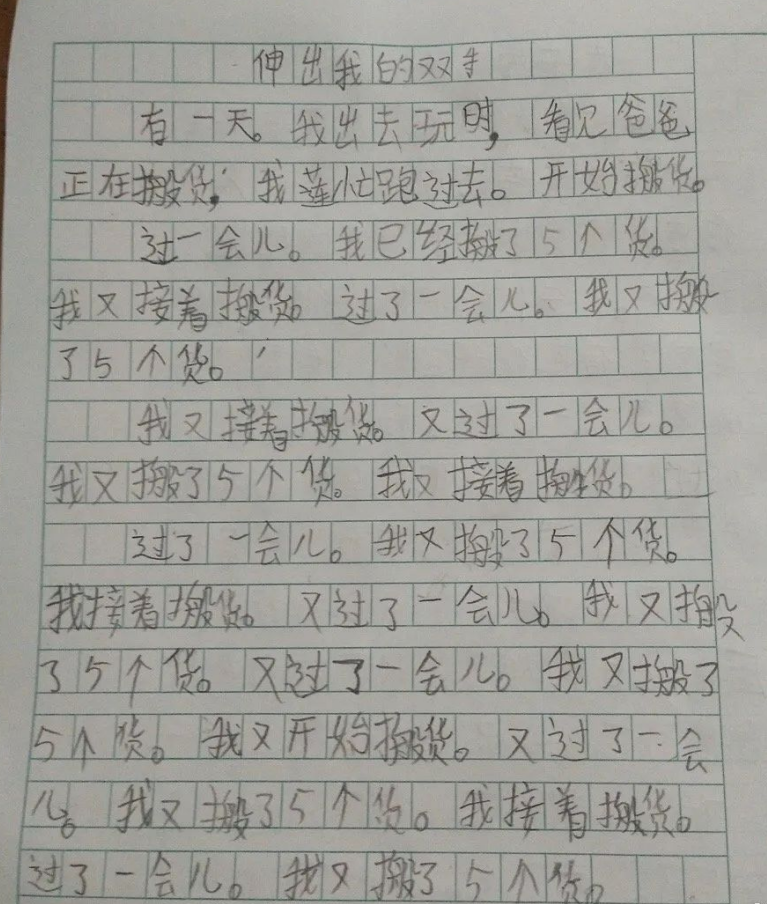 伸出我的双手
有一天。我出去玩时，看见爸爸
正在搬货，我莲忙跑过去。开始搬货。
过一会儿。我已经搬了5个货。
我又接着搬货。过了一会儿。我又搬
了5个货。
我又接着搬货。又过了一会儿。
我又搬了5个货。我又接着搬货。
过了一会儿。我又搬了5个货。
我接着搬货。又过了一会儿。我又搬
了5个货。又过了一会儿。我又搬了
5个货。我又开始搬货。又过了一会
儿。我又搬了5个货。我接着搬货。
过了一会儿。我又搬了5个货。